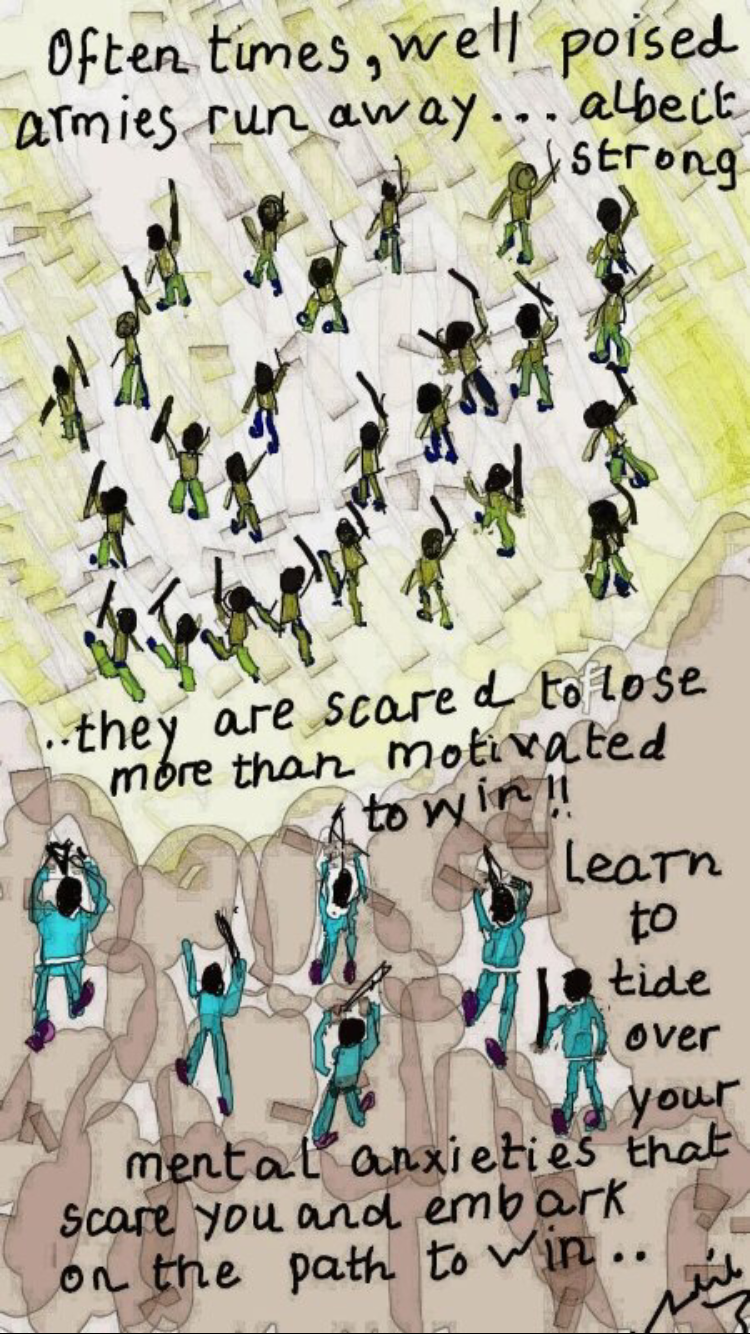 Often times, well poised
armies run away... albeit
strong
..they are scared to lose
more than motivated
to win!!
Learn
to
tide
over
your
mental anxieties that
scare you and embark
on the path to win..